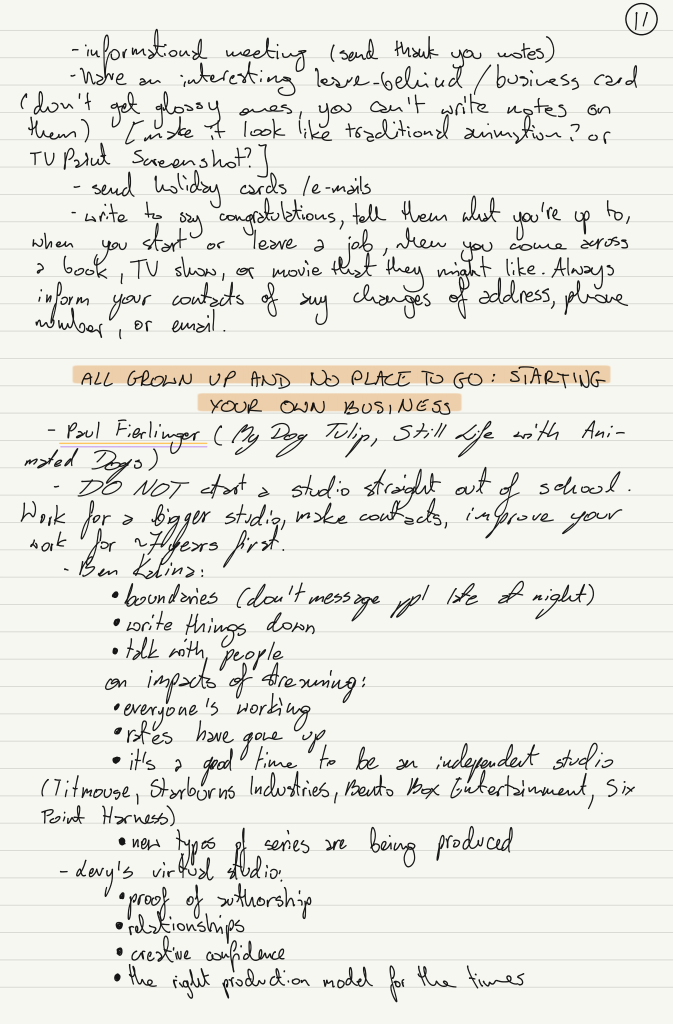 11
- informational meeting (send thank you notes)
- have an interesting leave-behind / business card
(don't get glossy ones, you can't write notes on
them) [make it look like traditional animation? or
TV Paint Screenshot?]
- send holiday cards / e-mails
- write to say congratulations, tell them what you're up to,
when you start or leave a job, when you come across
a book, TV show, or movie that they might like. Always
inform your contacts of any changes of address, phone
number, or email.
ALL GROWN UP AND NO PLACE TO GO: STARTING
YOUR OWN BUSINESS
- Paul Fierlinger (My Dog Tulip, Still Life with Ani-
mated Dogs)
- DO NOT start a studio straight out of school.
Work for a bigger studio, make contacts, improve your
work for ~7 years first.
- Ben Kalina:
• boundaries (don't message ppl late at night)
• write things down
• talk with people
on impacts of streaming:
• everyone's working
• rates have gone up
• it's a good time to be an independent studio
(Titmouse, Starburns Industries, Bento Box Entertainment, Six
Point Harness)
• new types of series are being produced
- Levy's virtual studio:
• proof of authorship
• relationships
• creative confidence
• the right production model for the times